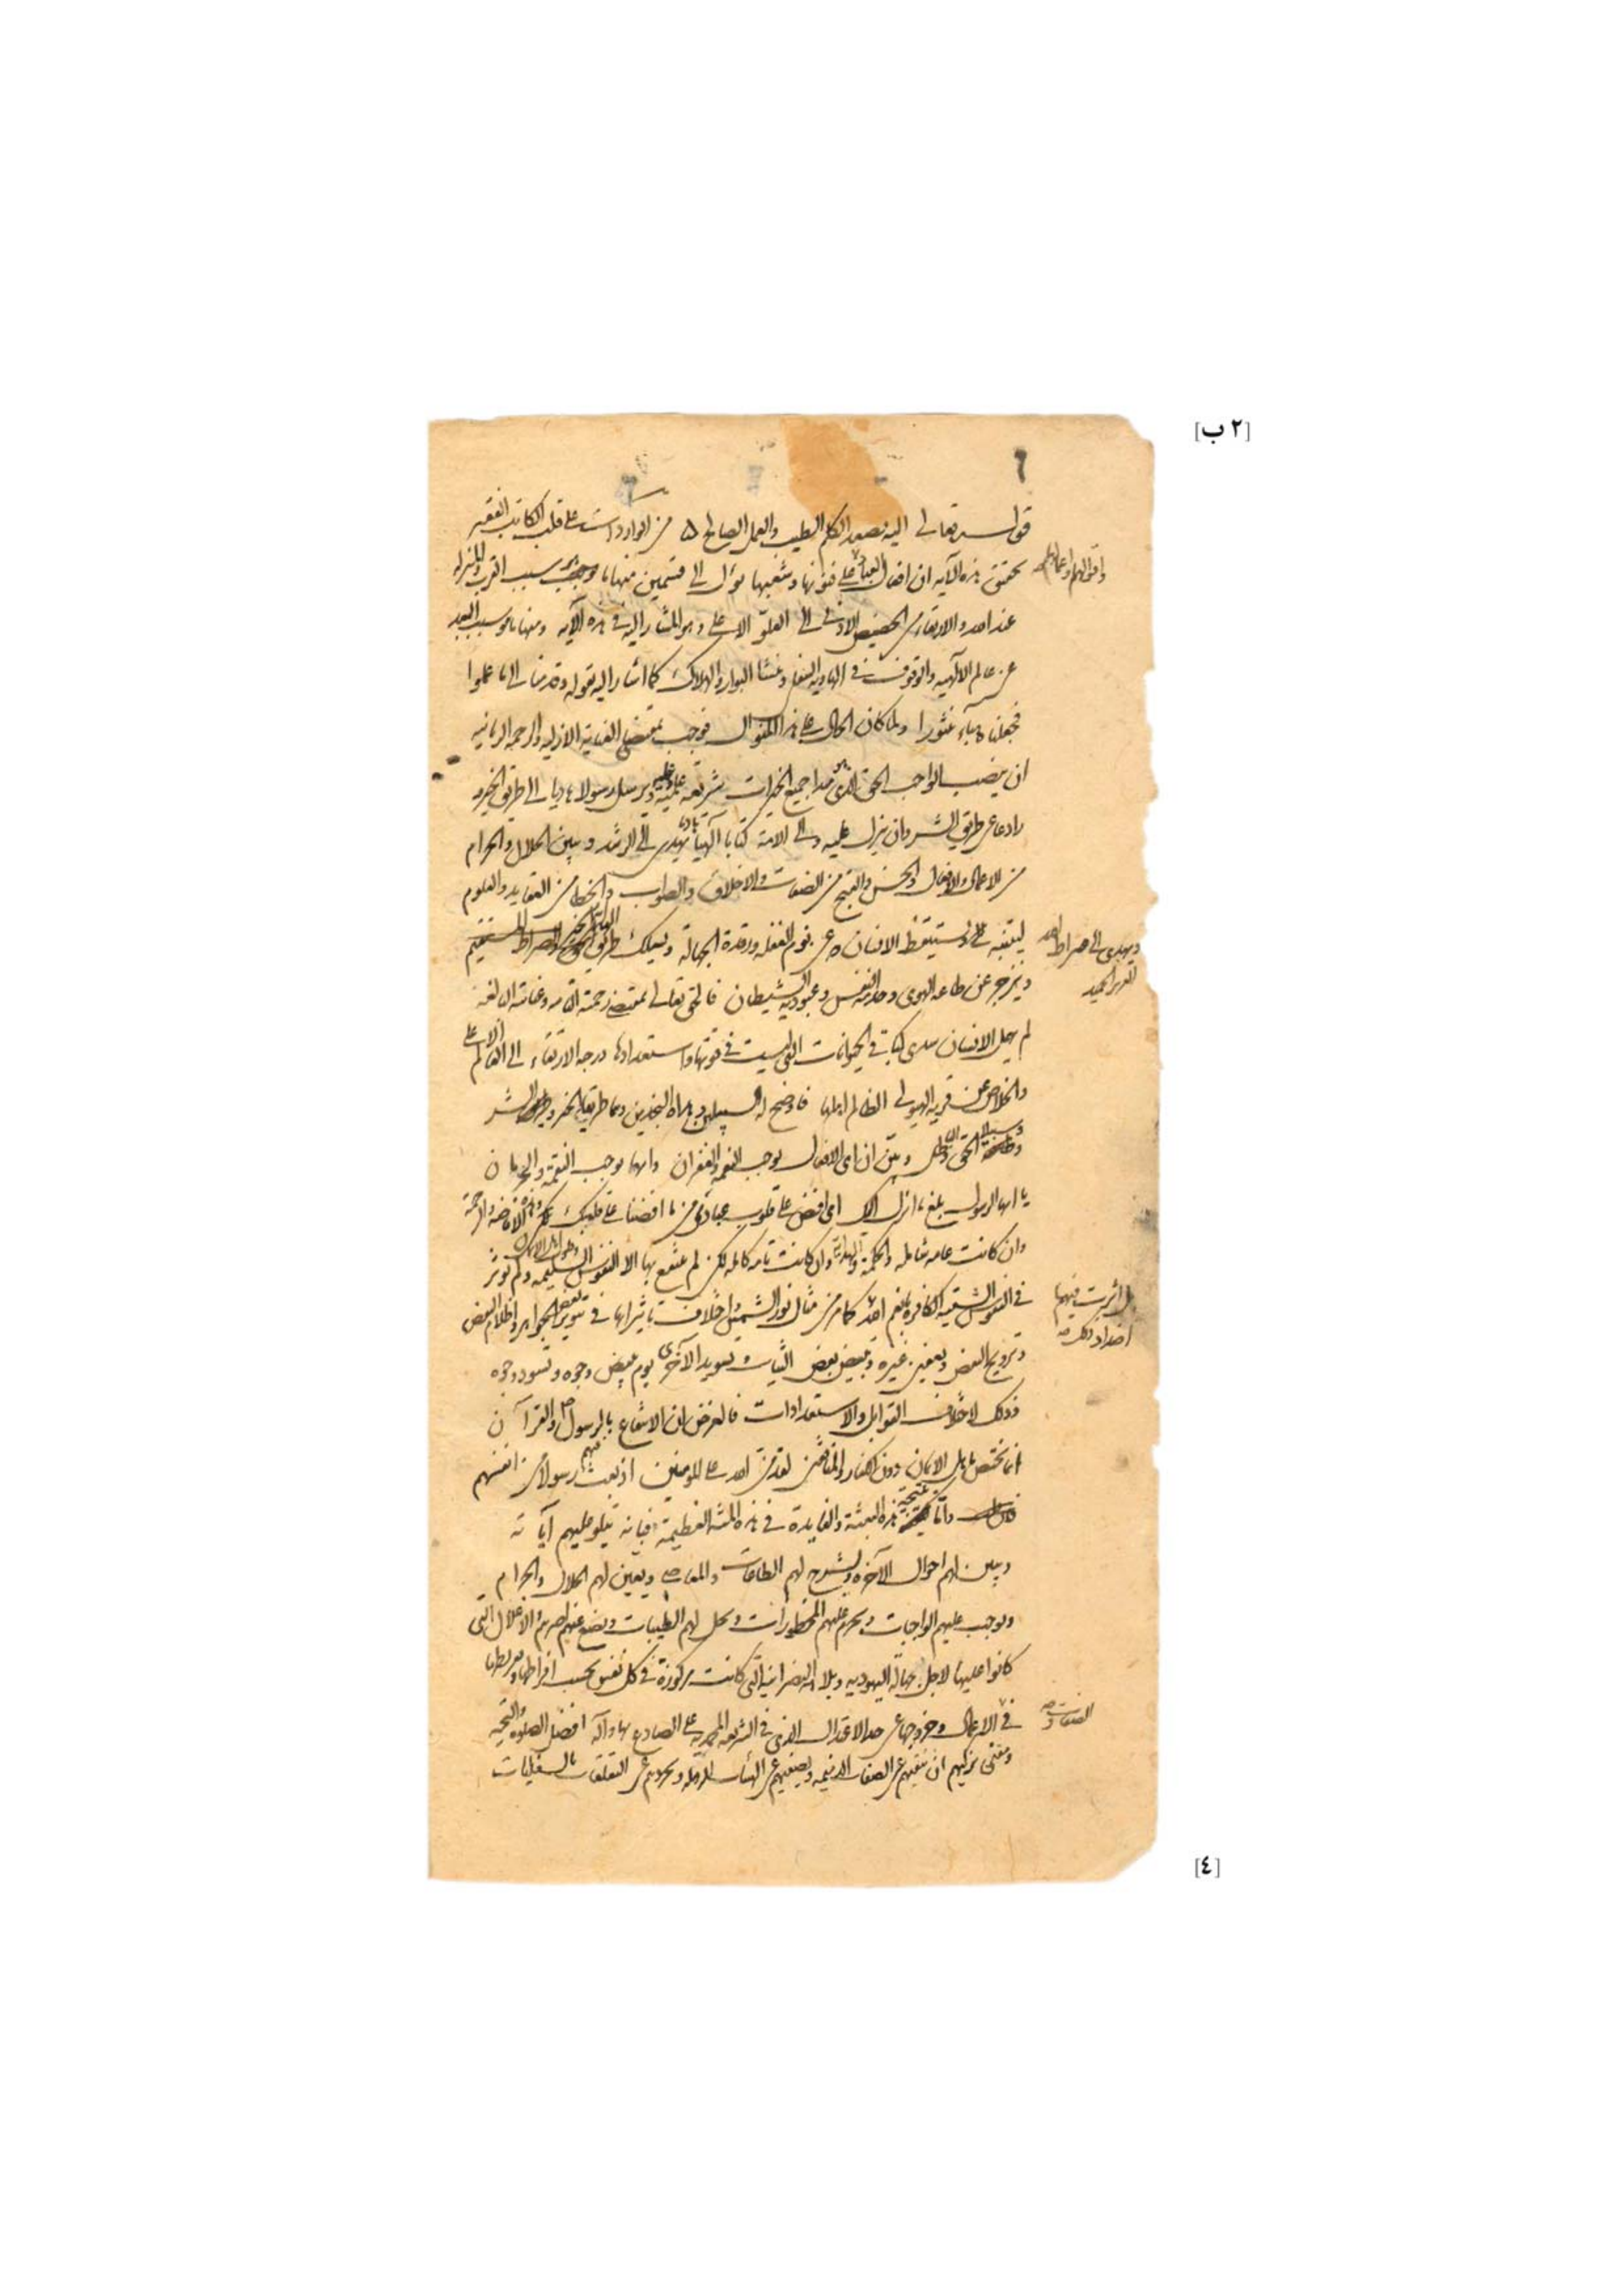 [٢ ب]
٦
قوله تعالى اليه يصعد الكلم الطيب والعمل الصالح من الواردات على قلب الكاتب الفقير
تحقيق هذه الآيه ان افعال العباد على فنونها وشعبها يؤل الى قسمين منها ما سبب القرب والمنزله
واقوالهم واعمالهم
عند الله والارتقاء من الحضيض الادنى الى العلو الاعلى وهو المشار اليه في هذه الآيه ومنها ما هو سبب البعد
عن عالم الالهيه والوقوف في الهاويه السفلى ومنشا البوار والهلاك كما اشار اليه بقوله وقدمنا الى ما عملوا
فجعلناه هباء منثورا ولما كان الحال على هذا المنوال فوجب بمقتضى العنايه الازليه والرحمه الربانيه
ان ينصب الواجب الحق الذى هو مبدا جميع الخيرات شريعه ويرسل رسولا هاديا الى طريق الخير و
رادعا عن طريق الشر وان ينزل عليه والى الامة كتابا الهيا يهدى الى الرشد ويبين الحلال والحرام
من الاعمال والافعال والحسن والقبح من الصفات والاخلاق والصواب والخطا من العقايد والعلوم
ليتنبه ويستيقظ الانسان عن نوم الغفله ورقدة الجهالة ويسلك طريق الصراط المستقيم
ويهدى الى صراط الله
العزيز الحميد
ويخرج عن طاعه الهوى وخدمه النفس وعبوديه الشيطان فالحق تعالى بمقتضى رحمته التامه وعنايته البالغه
لم يهمل الانسان سدى كباقي الحيوانات التي ليست في قوتها واستعدادها درجه الارتقاء الى العالم الاعلى
والخلاص عن قريه الهيولى الظالم اهلها فاوضح له السبيلين وهداه النجدين وهما طريقا الخير والشر
الحق والباطل وبين ان اى الافعال يوجب النعمه والغفران وايها يوجب النقمه والحرمان
يا ايها الرسول بلغ ما انزل اليك اى افض على قلوب عبادى من ما افضنا على قلبك
وان كانت عامه شامله والحكمة والهداية وان كانت تامه كامله لكن لم ينتفع بها الا النفوس السليمه ولم تؤثر
في النفوس الشقيه الكافره بانعم الله كما مر من مثال نور الشمس واختلاف تاثيراتها في تنوير بعض الجواهر واظلام البعض
بل اثرت فيهما
اضداد ذلك صح
وترويح البعض وتعفين غيره وتبييض بعض الثياب وتسويد الآخرى يوم تبيض وجوه وتسود وجوه
فذلك لاختلاف القوابل والاستعدادات فالغرض ان الانتفاع بالرسول والقرآن
انما يختص باهل الايمان دون الكفار والمنافقين لقد من الله على المومنين اذ بعث فيهم رسولا من انفسهم
واما نتيجة هذه البعثة والفايدة في هذه المنة العظيمة فبانه يتلو عليهم آياته
ويبين لهم احوال الآخره ويشرح لهم الطاعات والمعاصي ويعين لهم الحلال والحرام
ويوجب عليهم الواجبات ويحرم عليهم المحظورات ويحل لهم الطيبات ويضع عنهم اصرهم والاغلال التي
كانوا عليها لاجل جهالة اليهوديه وبلاهه النصرانيه التي كانت مركوزة في كل نفس بحسب افراطها وتفريطها
في الاعمال وخروجها عن حد الاعتدال الذى في الشريعه المحمديه على الصادع بها وآله افضل الصلوه والتحيه
الصفات و صح
ومعنى تزكيهم ان ينقيهم عن الصفات الذميمه ويصفيهم عن الهيئات الرذيله ويجردهم عن التعلقات بالسفليات
[٤]